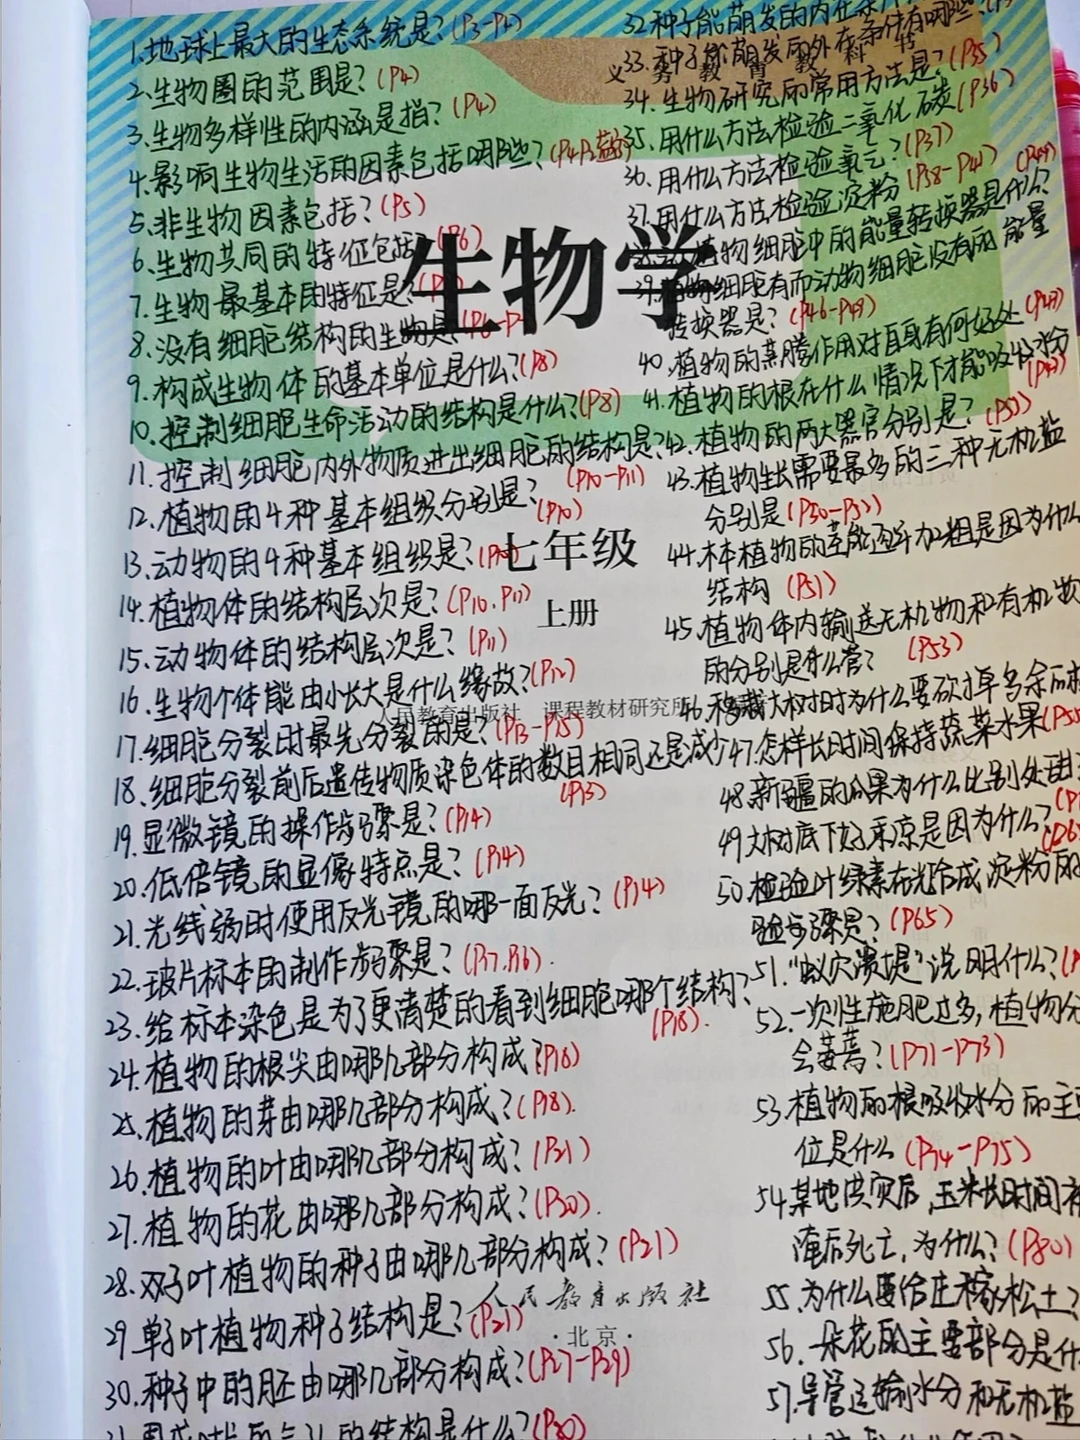 1.地球上最大的生态系统是?(P3-P4)
2.生物圈的范围是?(P4)
3.生物多样性的内涵是指?(P4)
4.影响生物生活的因素包括哪些?
5.非生物因素包括?(P5)
6.生物共同的特征包括 (P6)
7.生物最基本的特征是?
8.没有细胞结构的生物是?
9.构成生物体的基本单位是什么?(P8)
10.控制细胞生命活动的结构是什么?(P8)
11.控制细胞内外物质进出细胞的结构是?
(P10-P11)
12.植物的4种基本组织分别是?
(P10)
13.动物的4种基本组织是?
14.植物体的结构层次是?(P10.P11)
15.动物体的结构层次是?(P11)
16.生物个体能由小长大是什么缘故?(P12)
17.细胞分裂时最先分裂的是?(P13-P15)
18.细胞分裂前后遗传物质染色体的数目相同还是减少
(P13)
19.显微镜的操作步骤是?(P14)
20.低倍镜的显像特点是?(P14)
21.光线弱时使用反光镜的哪一面反光?(P14)
22.玻片标本的制作步骤是?(P17.P16).
23.给标本染色是为了更清楚的看到细胞哪个结构?
(P18).
24.植物的根尖由哪几部分构成?(P16)
25.植物的芽由哪几部分构成?(P18).
26.植物的叶由哪几部分构成?(P21)
27.植物的花由哪几部分构成?(P20).
28.双子叶植物的种子由哪几部分构成?(P21)
29.单子叶植物种子结构是?(P21)
30.种子中的胚由哪几部分构成?(P27-P29)
的结构是什么?(P30)
32.种子能萌发的内在条件
33.种子能萌发的外在条件有哪些?
34.生物研究的常用方法是?(P35)
35.用什么方法检验二氧化碳(P36)
36.用什么方法检验氧气?(P37)
37.用什么方法检验淀粉(P38-P41)
植物细胞中的能量转换器是什么?(P44)
39.植物细胞有而动物细胞没有的能量
转换器是?(P46-P49)
40.植物的蒸腾作用对自身有何好处
41.植物的根在什么情况下才能吸收水分
42.植物的两大器官分别是?
43.植物生长需要最多的三种无机盐
分别是(P50-P52)
44.木本植物的茎能逐年加粗是因为什么
结构 (P51)
45.植物体内输送无机物和有机物
的分别是什么管? (P53)
46.移栽大树时为什么要砍掉多余
47.怎样长时间保持蔬菜水果
48.新疆的瓜果为什么比别处甜
49.大树底下好乘凉是因为什么?
50.检验叶绿素在光合成淀粉的
验步骤是?(P65)
51."蚁穴溃堤"说明什么?
52.一次性施肥过多,植物
会萎蔫?(P71-P73)
53.植物的根吸收水分的主
位是什么(P74-P75)
54.某地洪灾后,玉米长时间
淹后死亡,为什么?(P80)
55.为什么要给庄稼松土?
56.一朵花的主要部分是什
57.导管运输水分和无机盐
义 务 教 育 教 科 书
生物学
七年级
上册
人民教育出版社 课程教材研究所
人民教育出版社
·北京·